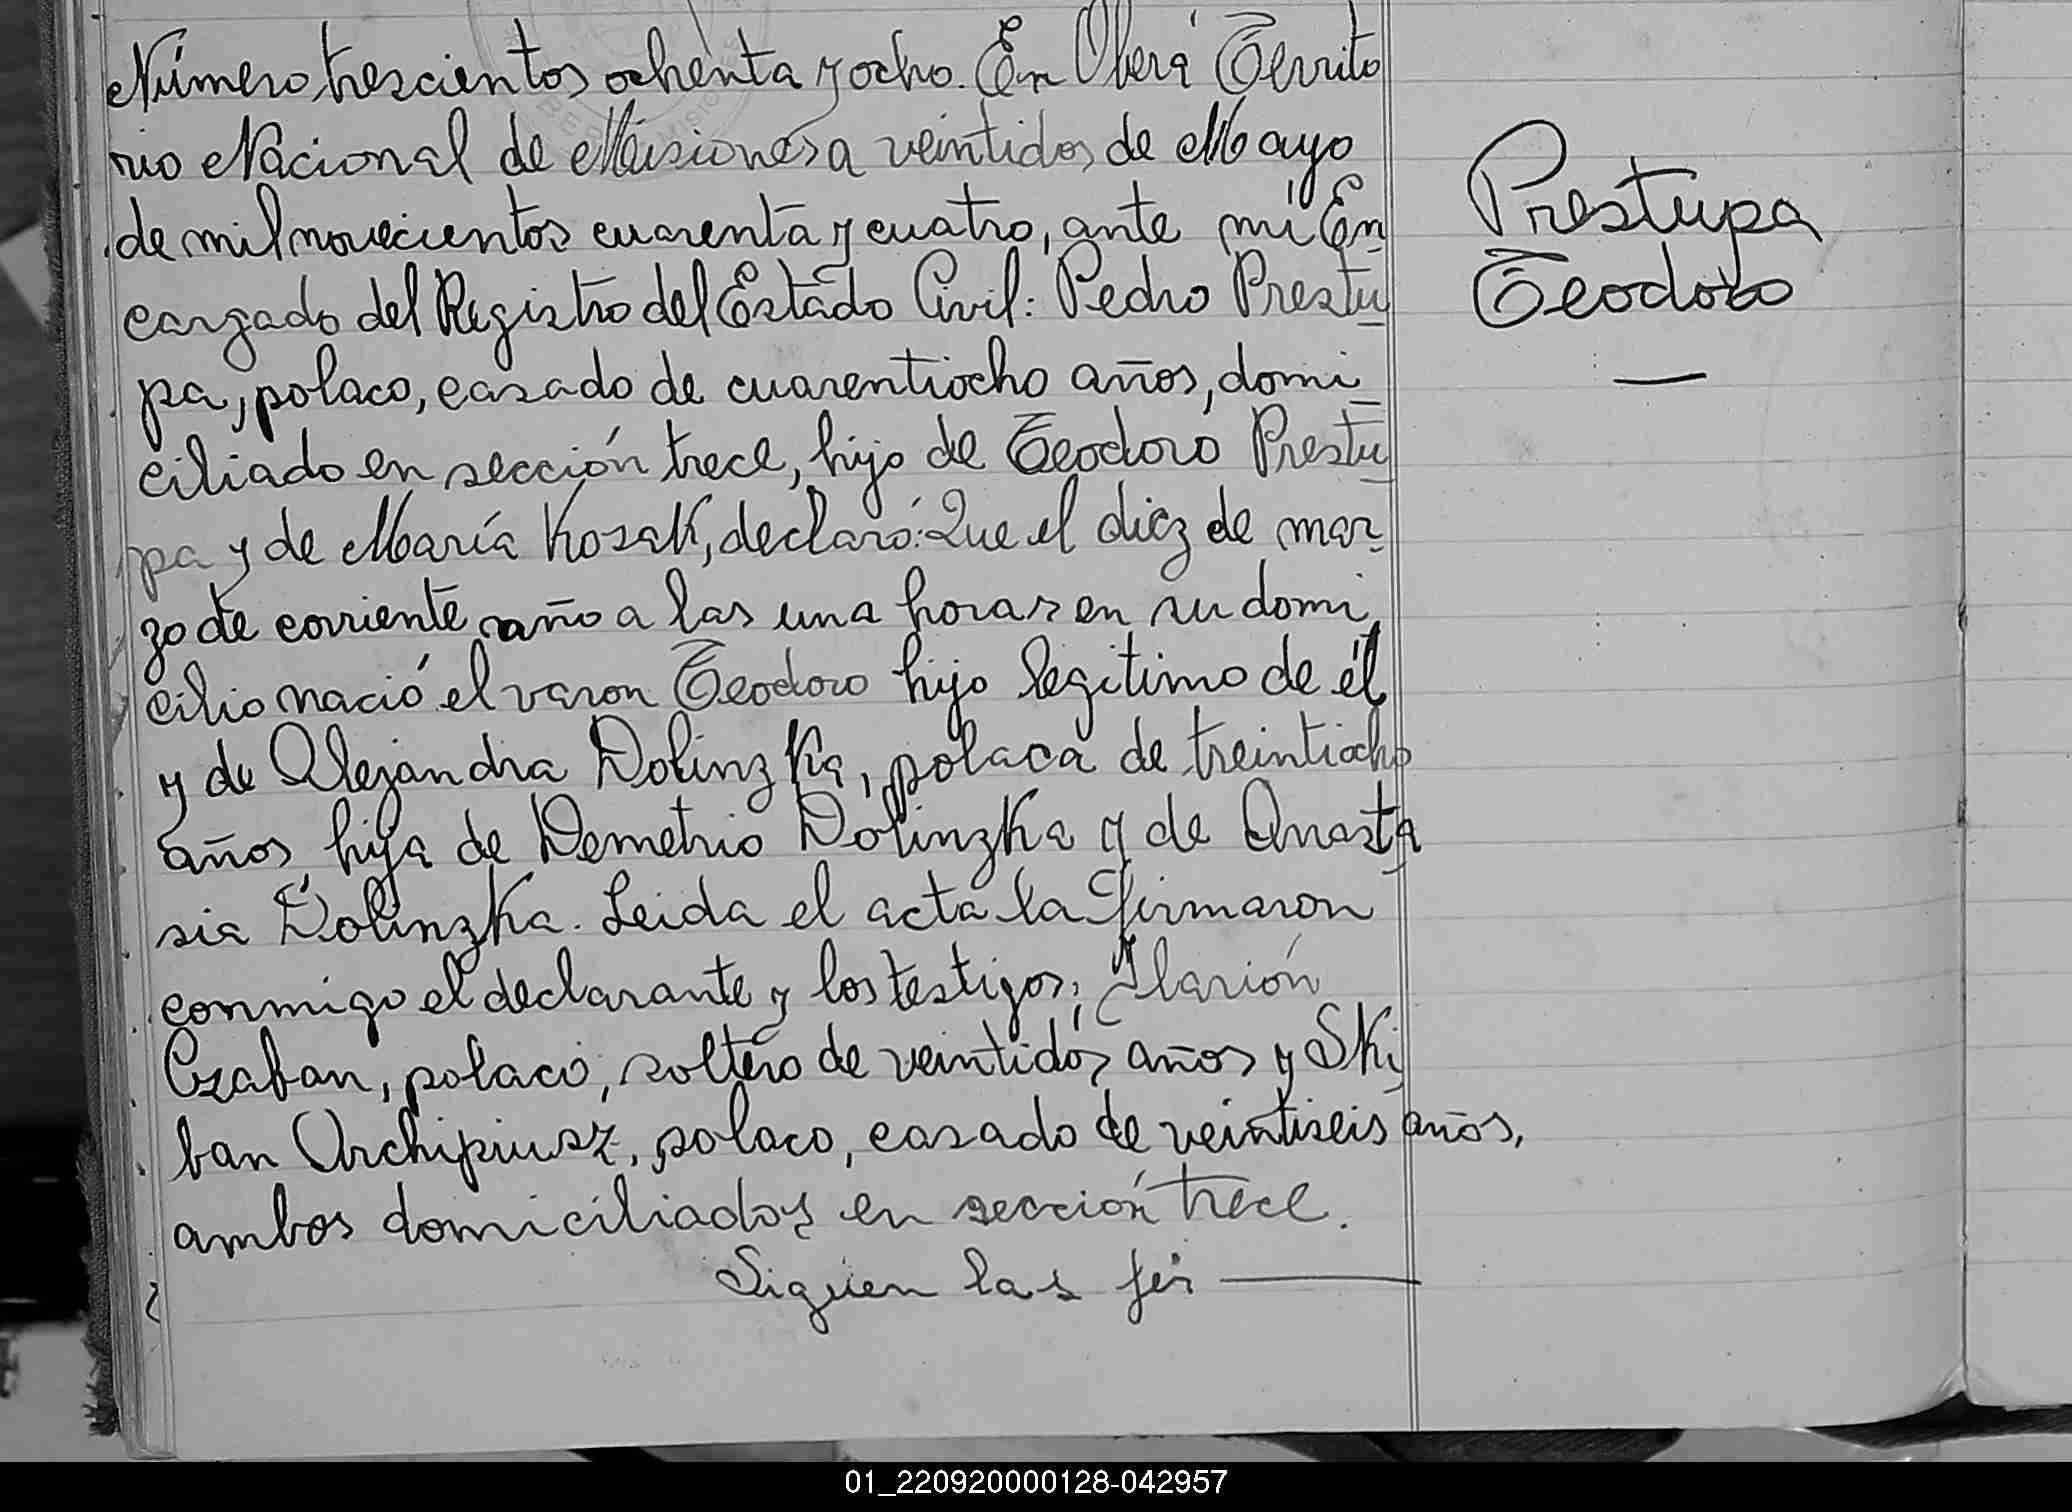 Número, trescientos ochenta y ocho. En Oberá Territo
rio Nacional de Misiones a veintidos de Mayo
de mil novecientos cuarenta y cuatro, ante mí En-
cargado del Registro del Estado Civil: Pedro Prestu
pa, polaco, casado de cuarentiocho años, domi-
ciliado en sección trece, hijo de Teodoro Prestu
pa y de María Kosak, declaró: Que el diez de mar-
zo de corriente año a las una horas en su domi
cilio nació el varon Teodoro hijo legítimo de él
y de Alejandra Dolinzka, polaca de treintiocho
años, hija de Demetrio Dolinzka y de Anasta
sia Dolinzka. Leida el acta la firmaron
conmigo el declarante y los testigos, Ilarión
Czaban, polaco, soltero de veintidós años y Ski
ban Archipiusz, polaco, casado de veintiseis años,
ambos domiciliados en sección trece.
Siguen las fir
Prestupa
Teodoro
01_220920000128-042957